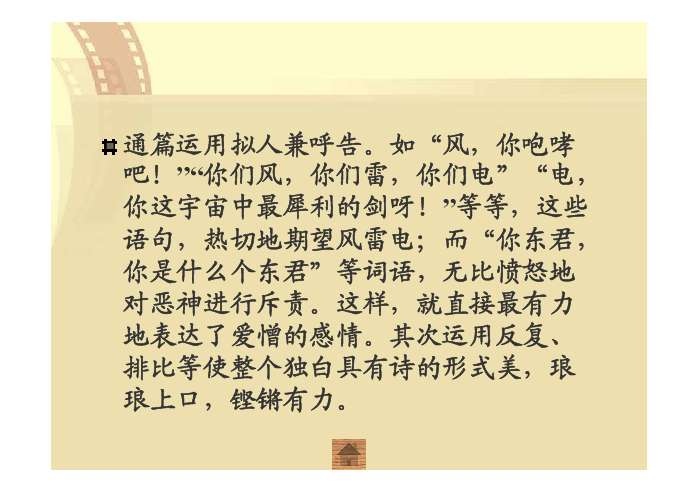 通篇运用拟人兼呼告。如“风，你咆哮
吧！”“你们风，你们雷，你们电”“电，
你这宇宙中最犀利的剑呀！”等等，这些
语句，热切地期望风雷电；而“你东君，
你是什么个东君”等词语，无比愤怒地
对恶神进行斥责。这样，就直接最有力
地表达了爱憎的感情。其次运用反复、
排比等使整个独白具有诗的形式美，琅
琅上口，铿锵有力。